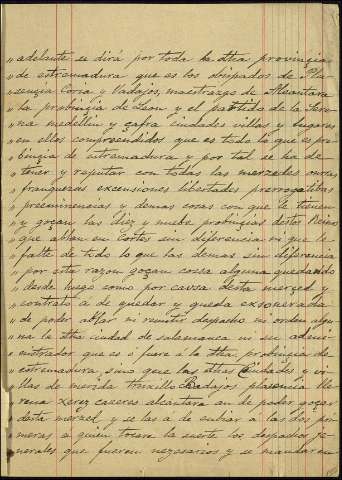 „ adelante se dirá por toda la dha. provinçia
„ de estremadura que es los obispados de Pla
„ sençia Coria y Vadajoz, maestrazgo de Alcantara
„ la probinçia de Leon y el partido de la Sere
„ na medellin y çafra ciudades villas y lugares
„ en ellos compreendidos que es todo lo que es pro
„ binçia de estremadura y por tal se ha de
„ tener y reputar con todas las merçedes onras
„ franquezas excensiones libertades prerrogatibas
„ preeminencias y demas cosas con que le tienen
„ y goçan las diez y nuebe probinçias destos Reinos
„ que ablan en Cortes sin diferencia ni que le
„ falte de todo lo que las demas sin diferencia
„ por esta razon goçan cossa alguna quedando
„ desde luego como por caussa desta merced y
„ contrato a de quedar y queda exsonerada
„ de poder ablar ni remitir despacho ni orden algu
„ na la dha ciudad de salamanca ni su admi-
„ nistrador que es ó fuere á la dha. probinçia de
„ estremadura, sino que las dhas Ciudades y vi
„ llas de merida truxillo Badajoz plasençia lle
„ rena xerez caceres alcantara an de poder goçar
„ desta merzed y se las á de enbiar á las dos pri
„ meras a quien tocare la suerte los despachos je
„ nerales que fueren neçesarios y se mandaren